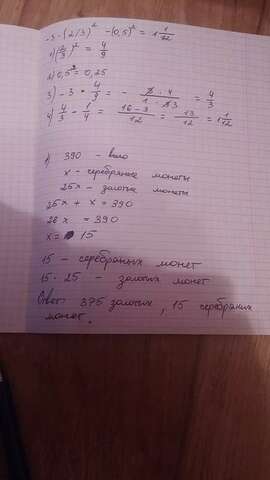 -3·(2/3)² -(0,5)² = 1 1/12
1) (2/3)² = 4/9
2) 0,5² = 0,25
3) -3 · 4/9 = - 3·4/1·93 = 4/3
4) 4/3 - 1/4 = 16-3/12 = 13/12 = 1 1/12
390 - было
x - серебряные монеты
25x - золотые монеты
25x + x = 390
26x = 390
x = 15
15 - серебряных монет
15 · 25 - золотых монет
Ответ: 375 золотых, 15 серебряных
монет.